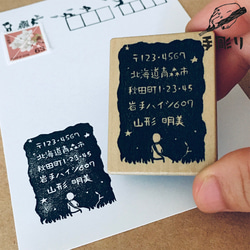 手彫り
〒123-4567
北海道青森市
秋田町1-23-45
岩手ハイツ607
山形 明美
〒123-4567
北海道青森市
秋田町1-23-45
岩手ハイツ607
山形 明美